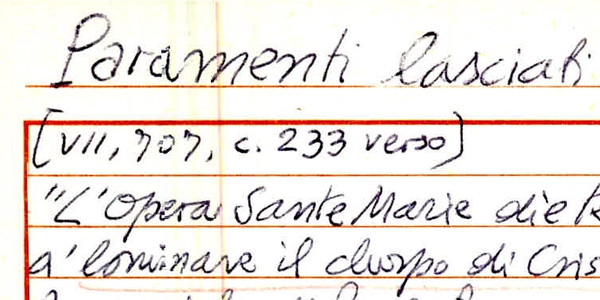 Paramenti lasciati
[VII, 707, c. 233 verso]
"L'Opera Sante Marie die
a' lominare il chorpo di Cris